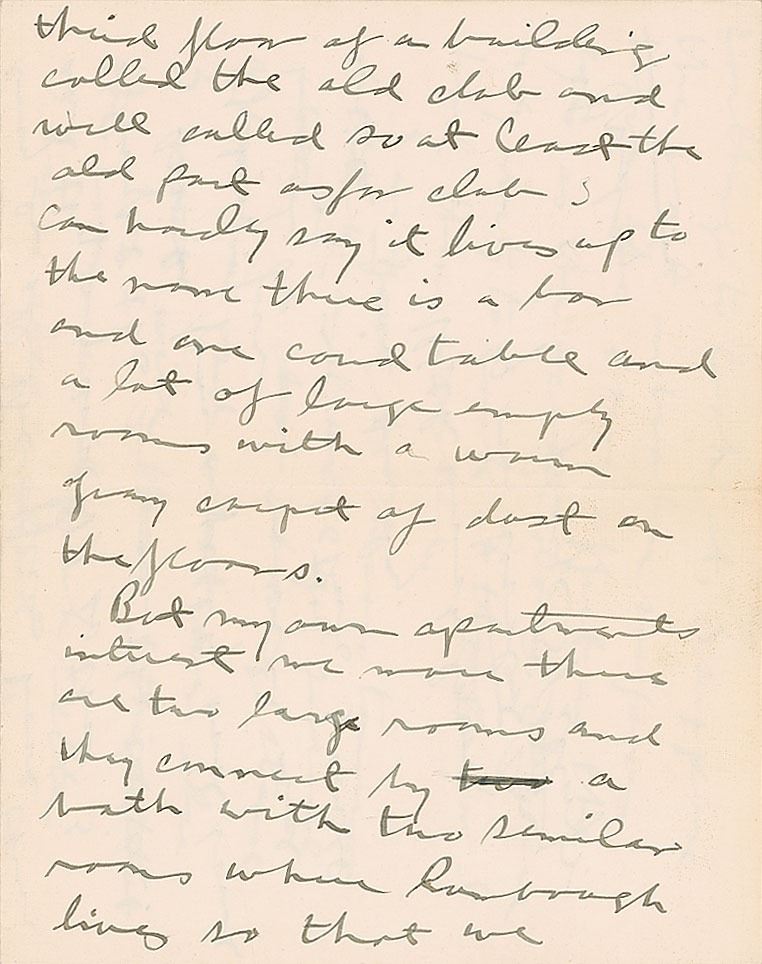 third floor of a building
called the old club and
well called so at least the
old part as for club I
can hardly say it lives up to
the name there is a bar
and one card table and
a lot of large empty
rooms with a warm
gray carpet of dust on
the floors.
But my own apartments
interest me more there
are two large rooms and
they connect by two a
bath with two similar
rooms where
lives so that we